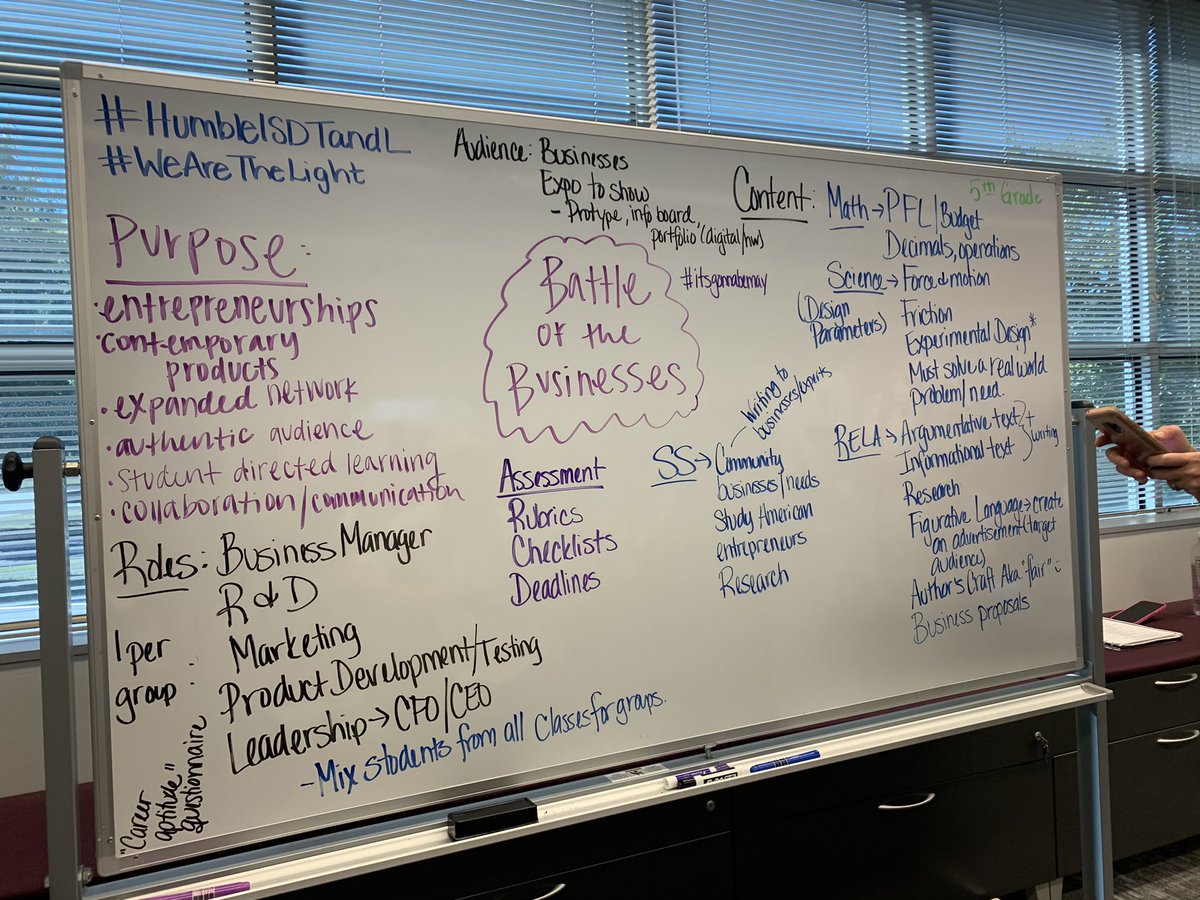 #HumbleISDTandL
#WeAreTheLight
Audience: Businesses
Expo to show
- Protype, info board,
portfolio (digital/hw)
Purpose:
·entrepreneurships
·contemporary
products
·expanded network
·authentic audience
·student directed learning
·collaboration/communication
Battle
of the
Businesses
#itsgonnabemay
Content:
5th Grade
Math→PFL/Budget
Decimals, operations
Science→Force & motion
(Design
Parameters)
Friction
Experimental Design*
Must solve a real world
problem/need.
RELA→Argumentative text
Informational text
+
writing
Research
Figurative Language→create
an advertisement (target
audience)
Author's Craft Aka "fair"
Business proposals
SS→Community
businesses/needs
Writing to
businesses/experts
Study American
entrepreneurs
Research
Assessment
Rubrics
Checklists
Deadlines
Roles: Business Manager
R & D
Marketing
Product Development/Testing
Leadership→CFO/CEO
-Mix students from all classes for groups.
1 per
group:
"Career
aptitude"
questionnaire